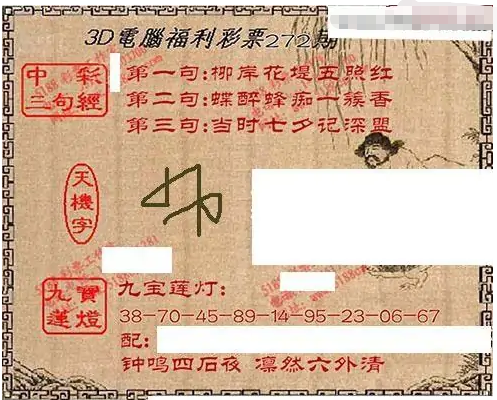 3D電腦福利彩票272期
中彩
三句經
第一句:柳岸花堤五照红
第二句:蝶醉蜂痴一簇香
第三句:当时七夕记深盟
天機字
九寶
蓮燈
九宝莲灯:
38-70-45-89-14-95-23-06-67
配:
钟鸣四后夜 凛然六外清